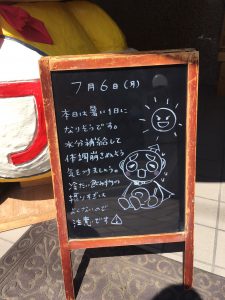 7月6日(月)
本日は暑い1日に
なりそうです。
水分補給して
体調崩さぬよう
気をつけましょう。
冷たい飲み物の
摂りすぎは
よくないので
注意です⚠